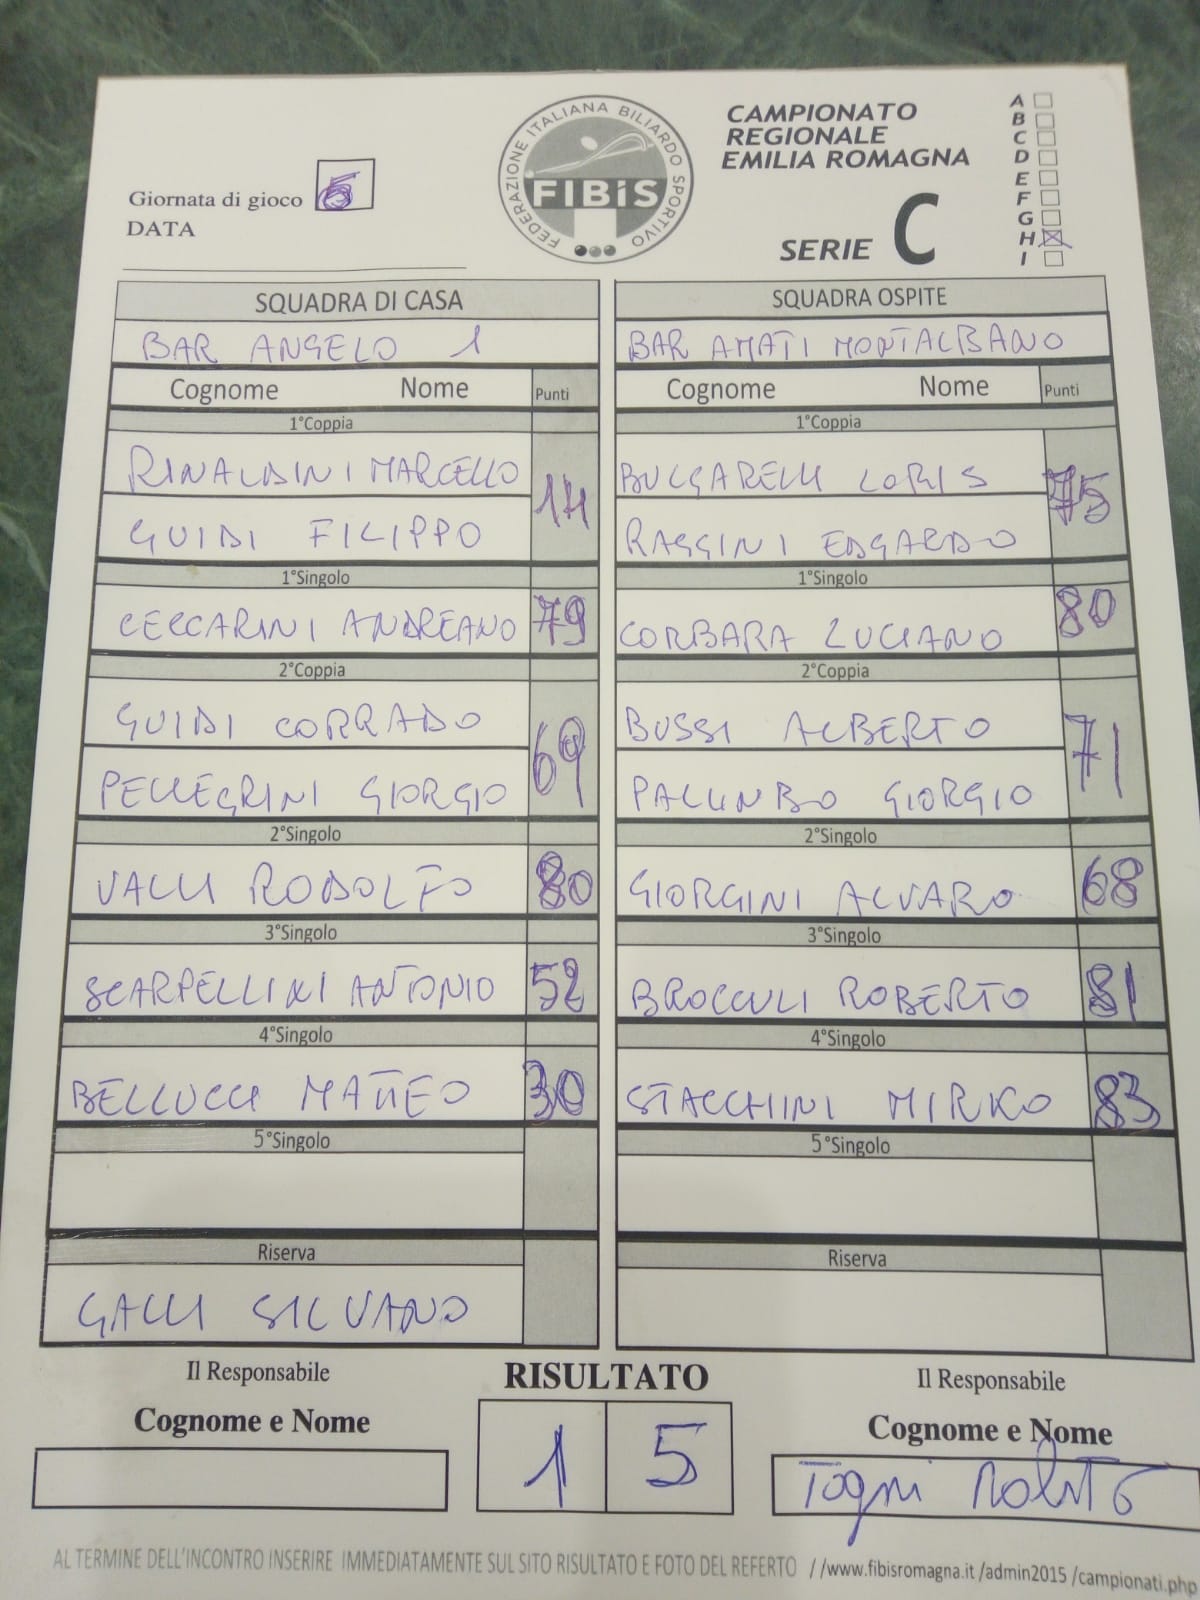 Giornata di gioco
DATA
FEDERAZIONE ITALIANA BILIARDO SPORTIVO
FIBiS
CAMPIONATO
REGIONALE
EMILIA ROMAGNA
SERIE C
A
B
C
D
E
F
G
H
I
SQUADRA DI CASA SQUADRA OSPITE
BAR ANGELO 1 BAR AMATI MONTALBANO
Cognome Nome Punti Cognome Nome Punti
1°Coppia 1°Coppia
RINALDINI MARCELLO 14 BULGARELLI LORIS 75
GUIDI FILIPPO RAGGINI EDGARDO
1°Singolo 1°Singolo
CECCARINI ANDREANO 79 CORBARA LUCIANO 80
2°Coppia 2°Coppia
GUIDI CORRADO 69 BUSSI ALBERTO 71
PELLEGRINI GIORGIO PALUNBO GIORGIO
2°Singolo 2°Singolo
VALLI RODOLFO 80 GIORGINI ALVARO 68
3°Singolo 3°Singolo
SCARPELLINI ANTONIO 52 BROCCULI ROBERTO 81
4°Singolo 4°Singolo
BELLUCCI MATTEO 30 STACCHINI MIRKO 83
5°Singolo 5°Singolo
Riserva Riserva
GALLI SILVANO
Il Responsabile RISULTATO Il Responsabile
Cognome e Nome 1 5 Cognome e Nome
Togni
AL TERMINE DELL'INCONTRO INSERIRE IMMEDIATAMENTE SUL SITO RISULTATO E FOTO DEL REFERTO //www.fibisromagna.it /admin2015 /campionati.php